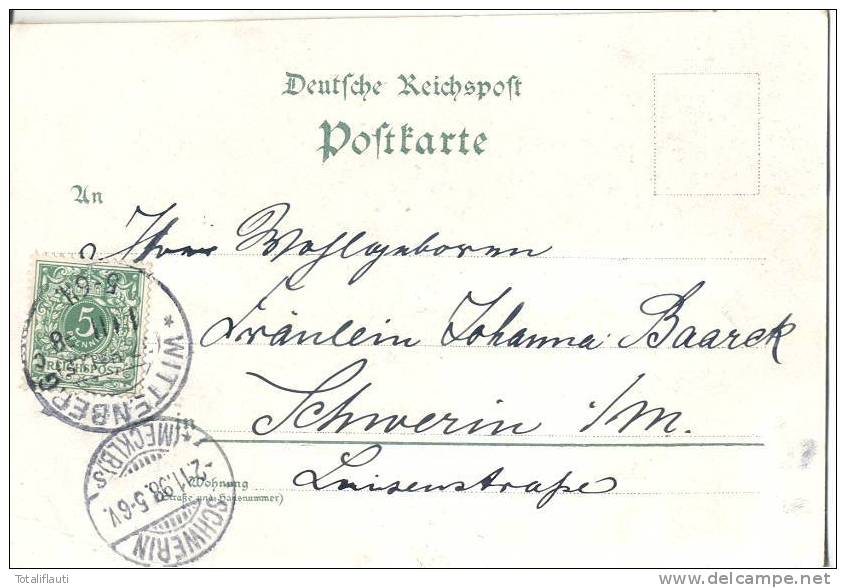 Deutsche Reichspost
Postkarte
An
Ihrer Wohlgeboren
5
PFENNIG
REICHSPOST
* WITTENBERG
5-6N
Fräulein Johanna Baarck
Schwerin i/M.
* (MECKLB) S
-2.11.98.5-6V.
SCHWERIN
Wohnung
(Straße und Hausnummer)
Luisenstraße
Totaliflauti
www.delcampe.net